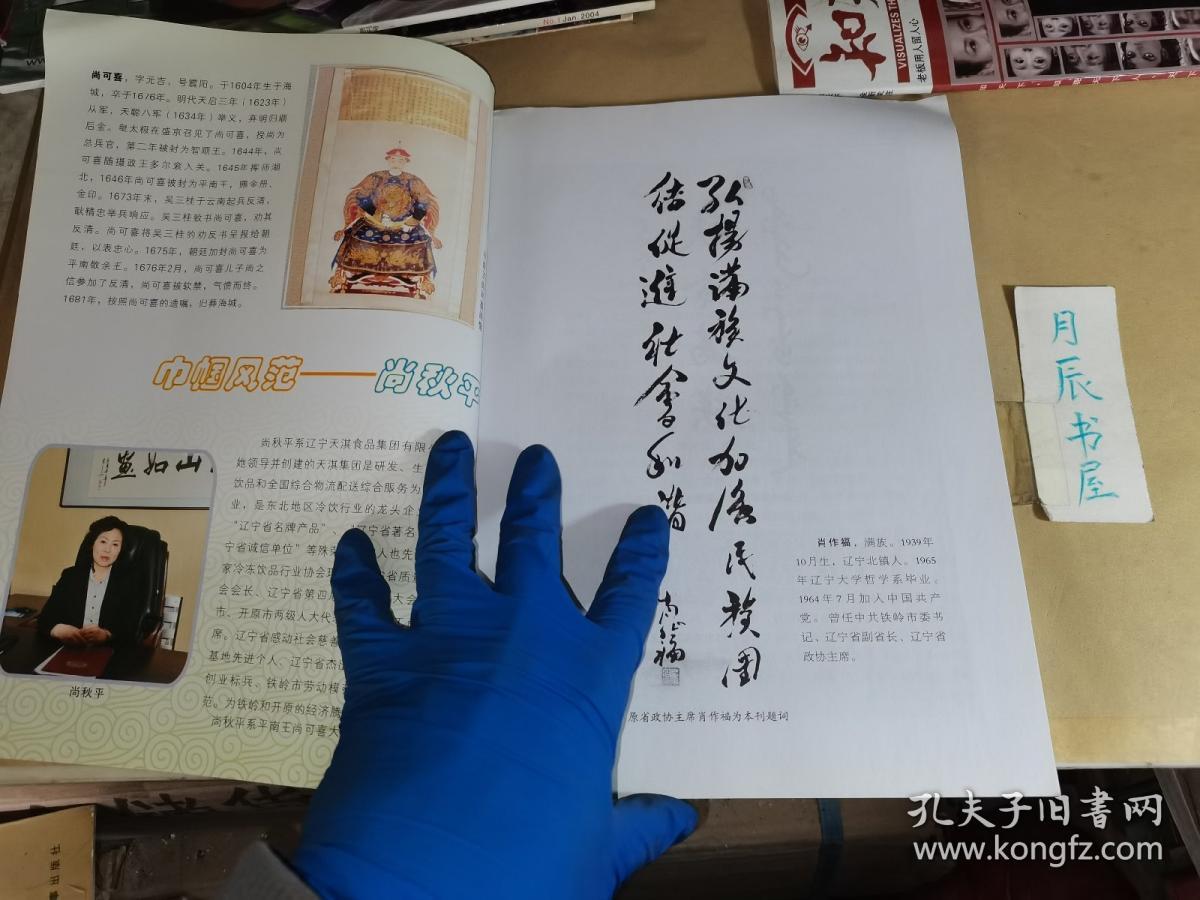 No.1 Jan.2004
VISUALIZES TH
老板用人留人心
尚可喜，字元吉，号震阳。于1604年生于海
城，卒于1676年。明代天启三年（1623年）
从军，天聪八年（1634年）举义，弃明归顺
后金。皇太极在盛京召见了尚可喜，授尚为
总兵官，第二年被封为智顺王。1644年，尚
可喜随摄政王多尔衮入关。1645年挥师湖
北，1646年尚可喜被封为平南王，赐金册、
金印。1673年末，吴三桂于云南起兵反清，
耿精忠举兵响应。吴三桂致书尚可喜，劝其
反清。尚可喜将吴三桂的劝反书呈报给朝
廷，以表忠心。1675年，朝廷加封尚可喜为
平南敬亲王。1676年2月，尚可喜儿子尚之
信参加了反清，尚可喜被软禁，气愤而终。
1681年，按照尚可喜的遗嘱，归葬海城。
巾帼风范——尚秋平
山如画
尚秋平
尚秋平系辽宁天淇食品集团有限
她领导并创建的天淇集团是研发、生
饮品和全国综合物流配送综合服务为
业，是东北地区冷饮行业的龙头企
“辽宁省名牌产品”、“辽宁省著名
宁省诚信单位”等殊 人也先
家冷冻饮品行业协会 省质
会会长、辽宁省第四 大会
市、开原市两级人大代
席。辽宁省感动社会慈善
基地先进个人、辽宁省杰
创业标兵、铁岭市劳动模
范。为铁岭和开原的经济腾
尚秋平系平南王尚可喜大
弘扬满族文化加强民族团
结促进社会和谐
肖作福
肖作福，满族。1939年
10月生，辽宁北镇人。1965
年辽宁大学哲学系毕业。
1964年7月加入中国共产
党。曾任中共铁岭市委书
记、辽宁省副省长、辽宁省
政协主席。
原省政协主席肖作福为本刊题词
月辰书屋
孔夫子旧书网
www.kongfz.com